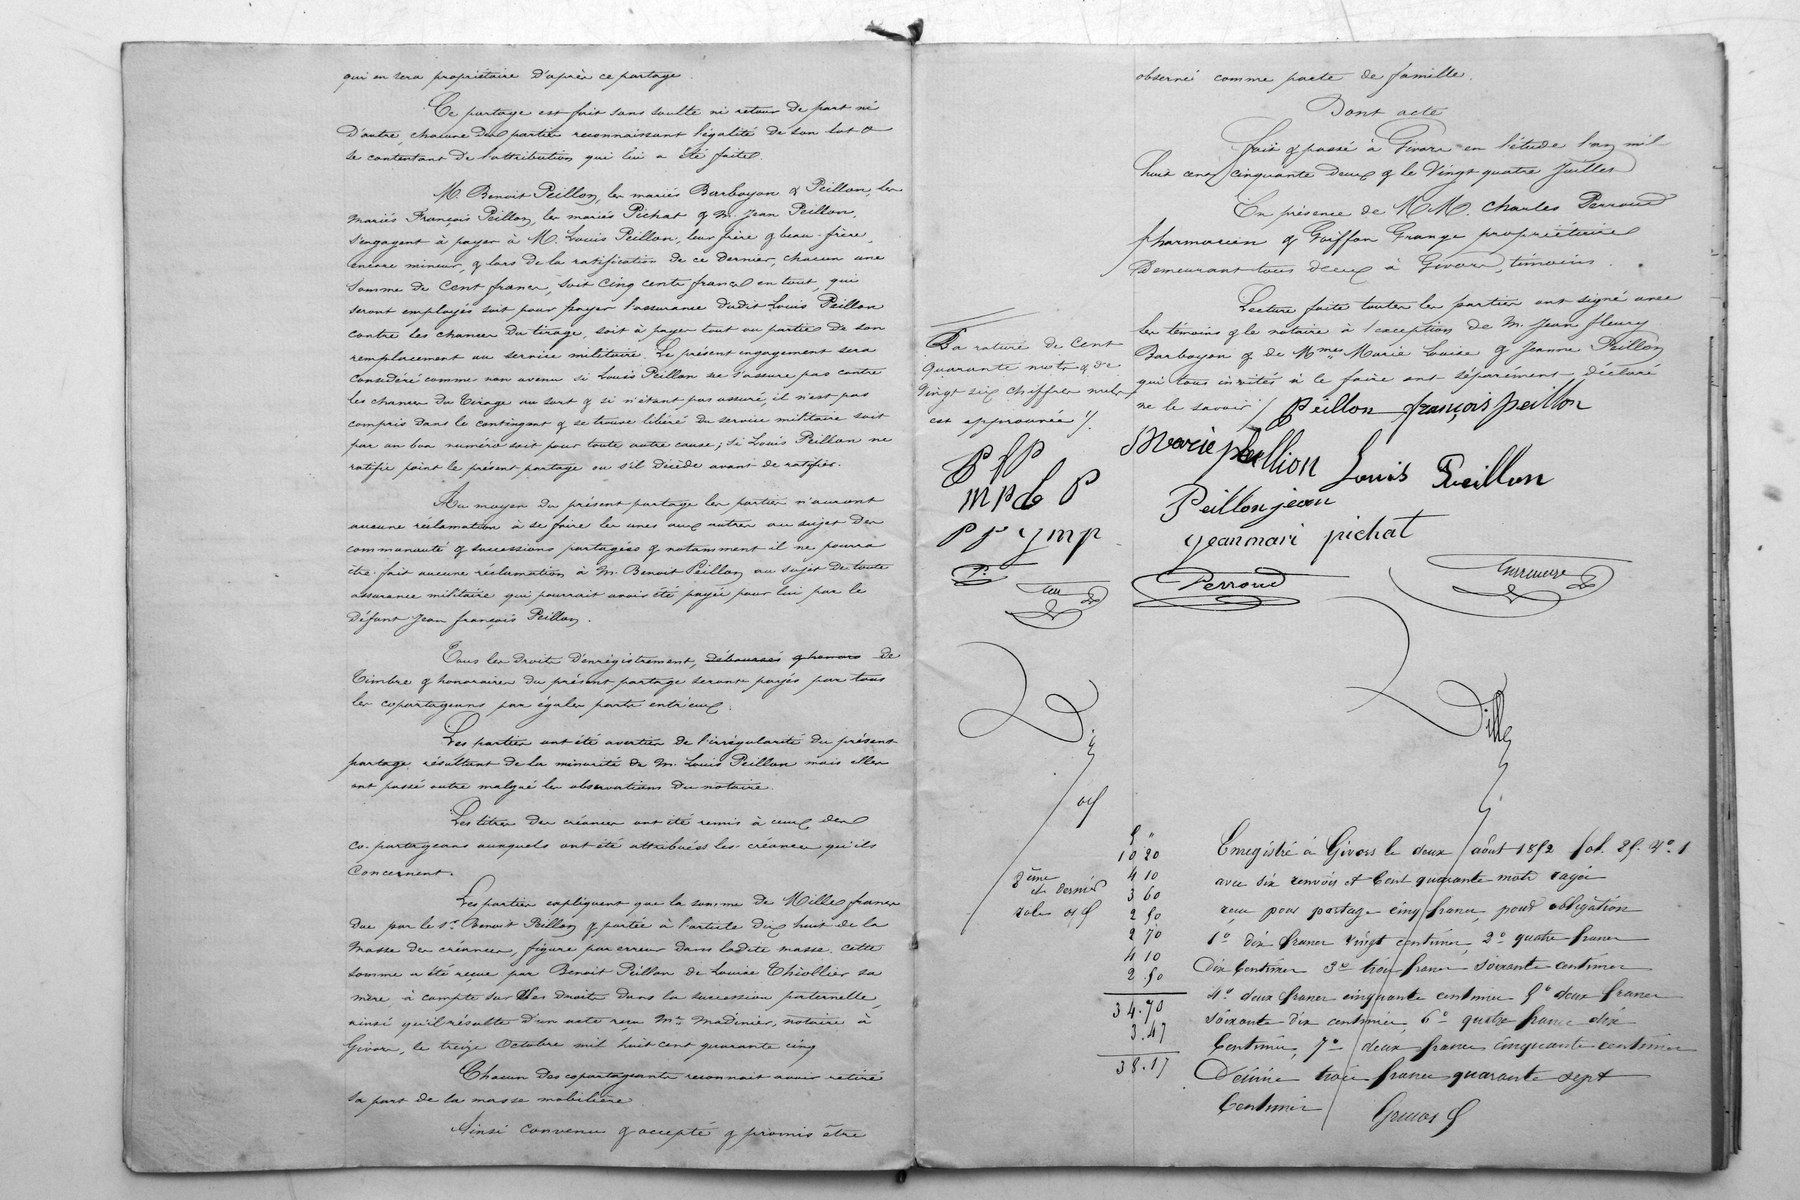 qui en sera propriétaire d'après ce partage.
Ce partage est fait sans soulte ni retour de part ni
d'autre, chacune des parties reconnaissant l'égalité de son lot &
se contentant de l'attribution qui lui a été faite.
M. Benoit Peillon, les mariés Barboyon & Peillon, les
mariés François Peillon, les mariés Pichat & M. Jean Peillon,
s'engagent à payer à M. Louis Peillon, leur frère & beau-frère,
encore mineur, & lors de la ratification de ce dernier, chacun une
somme de cent francs, soit cinq cents francs en tout, qui
seront employés soit pour payer l'assurance dudit Louis Peillon
contre les chances du tirage, soit à payer tout ou partie de son
remplacement au service militaire. Le présent engagement sera
considéré comme non avenu si Louis Peillon ne s'assure pas contre
les chances du tirage au sort & si n'étant pas assuré, il n'est pas
compris dans le contingent & se trouve libéré du service militaire soit
par un bon numéro soit pour toute autre cause; si Louis Peillon ne
ratifie point le présent partage ou s'il décède avant de ratifier.
Au moyen du présent partage les parties n'auront
aucune réclamation à se faire les unes aux autres au sujet des
communauté & successions partagées & notamment il ne pourra
être fait aucune réclamation à M. Benoit Peillon au sujet de toute
assurance militaire qui pourrait avoir été payée pour lui par le
défunt Jean françois Peillon.
Tous les droits d'enregistrement, déboursés & honors de
timbre & honoraires du présent partage seront payés par tous
les copartageans par égales parts entr'eux.
Les parties ont été averties de l'irrégularité du présent
partage résultant de la minorité de M. Louis Peillon mais elles
ont passé outre malgré les observations du notaire.
Les titres des créances ont été remis à ceux des
co-partageans auxquels ont été attribuées les créances qu'ils
concernent.
Les parties expliquent que la somme de Mille francs
due par le sr. Benoit Peillon & portée à l'article dix huit de la
masse des créances, figure par erreur dans ladite masse. Cette
somme a été reçue par Benoit Peillon de Louise Thiollier sa
mère à compte sur ses droits dans la succession paternelle,
ainsi qu'il résulte d'un acte reçu Me. Madinier, notaire à
Givors, le treize Octobre mil huit cent quarante cinq
Chacun des copartageants reconnait avoir retiré
sa part de la masse mobilière.
Ainsi convenu & accepté & promis être
observé comme pacte de famille.
Dont acte
Fait & passé à Givors en l'étude l'an mil
huit cent cinquante deux & le Vingt quatre Juillet
En présence de M.M. Charles Perroud
pharmacien & Goiffon Grange propriétaire
Demeurant tous deux à Givors, témoins.
Lecture faite toutes les parties ont signé avec
les témoins & le notaire à l'exception de M. Jean fleury
Barboyon & de Mmes Marie Louise & Jeanne Peillon
qui tous invités à le faire ont séparément déclaré
ne le savoir /.
La rature de Cent
quarante mots & de
Vingt six chiffres nuls
est approuvée /.
Peillon françois peillon
marie peillion Louis Peillon
Peillon jean
jean mari pichat
Perroud
P f P
m p & P
P P j m p
P.
5 "
10 20
4 10
3 60
2 50
2 70
4 10
2.50
34.70
3.47
38.17
8ème
et dernier
rôle
Enregistré à Givors le deux août 1852 fol. 25. No. 1
avec dix renvois et Cent quarante mots rayés
reçu pour partage cinq francs, pour obligation
1o dix francs vingt centimes, 2o quatre francs
dix centimes 3o trois francs soixante centimes
4o deux francs cinquante centimes 5o deux francs
soixante dix centimes, 6o quatre francs dix
Centimes, 7o deux francs cinquante centimes
Décime trois francs quarante sept
Centimes